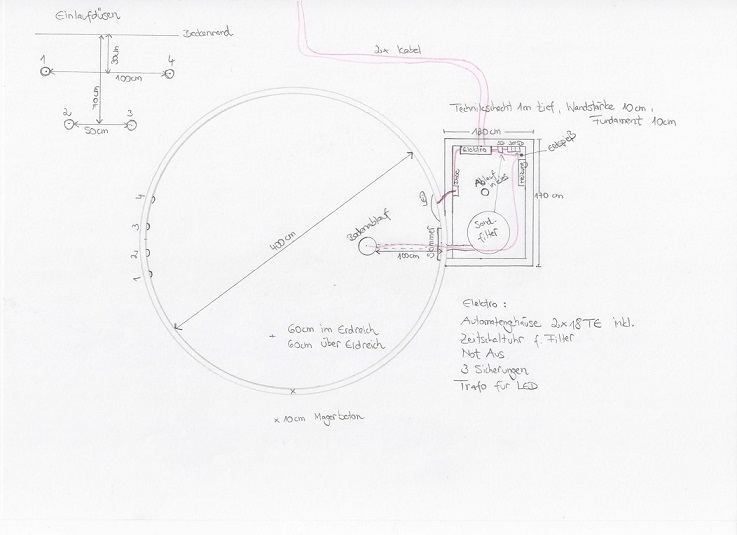 Einlaufdüsen
Beckenrand
30cm
1
4
100cm
70cm
2
3
50cm
2x Kabel
Technikschacht 1m tief, Wandstärke 10cm,
Fundament 10cm
120cm
Elektro
Erdspieß
Ablauf
in Kies
170cm
Sand-
filter
LED
Bodenablauf
Skimmer
100cm
400cm
4
3
2
1
60cm im Erdreich
60cm über Erdreich
x 10cm Magerbeton
Elektro:
Automatengehäuse 2x18TE inkl.
Zeitschaltuhr f. Filter
Not Aus
3 Sicherungen
Trafo für LED